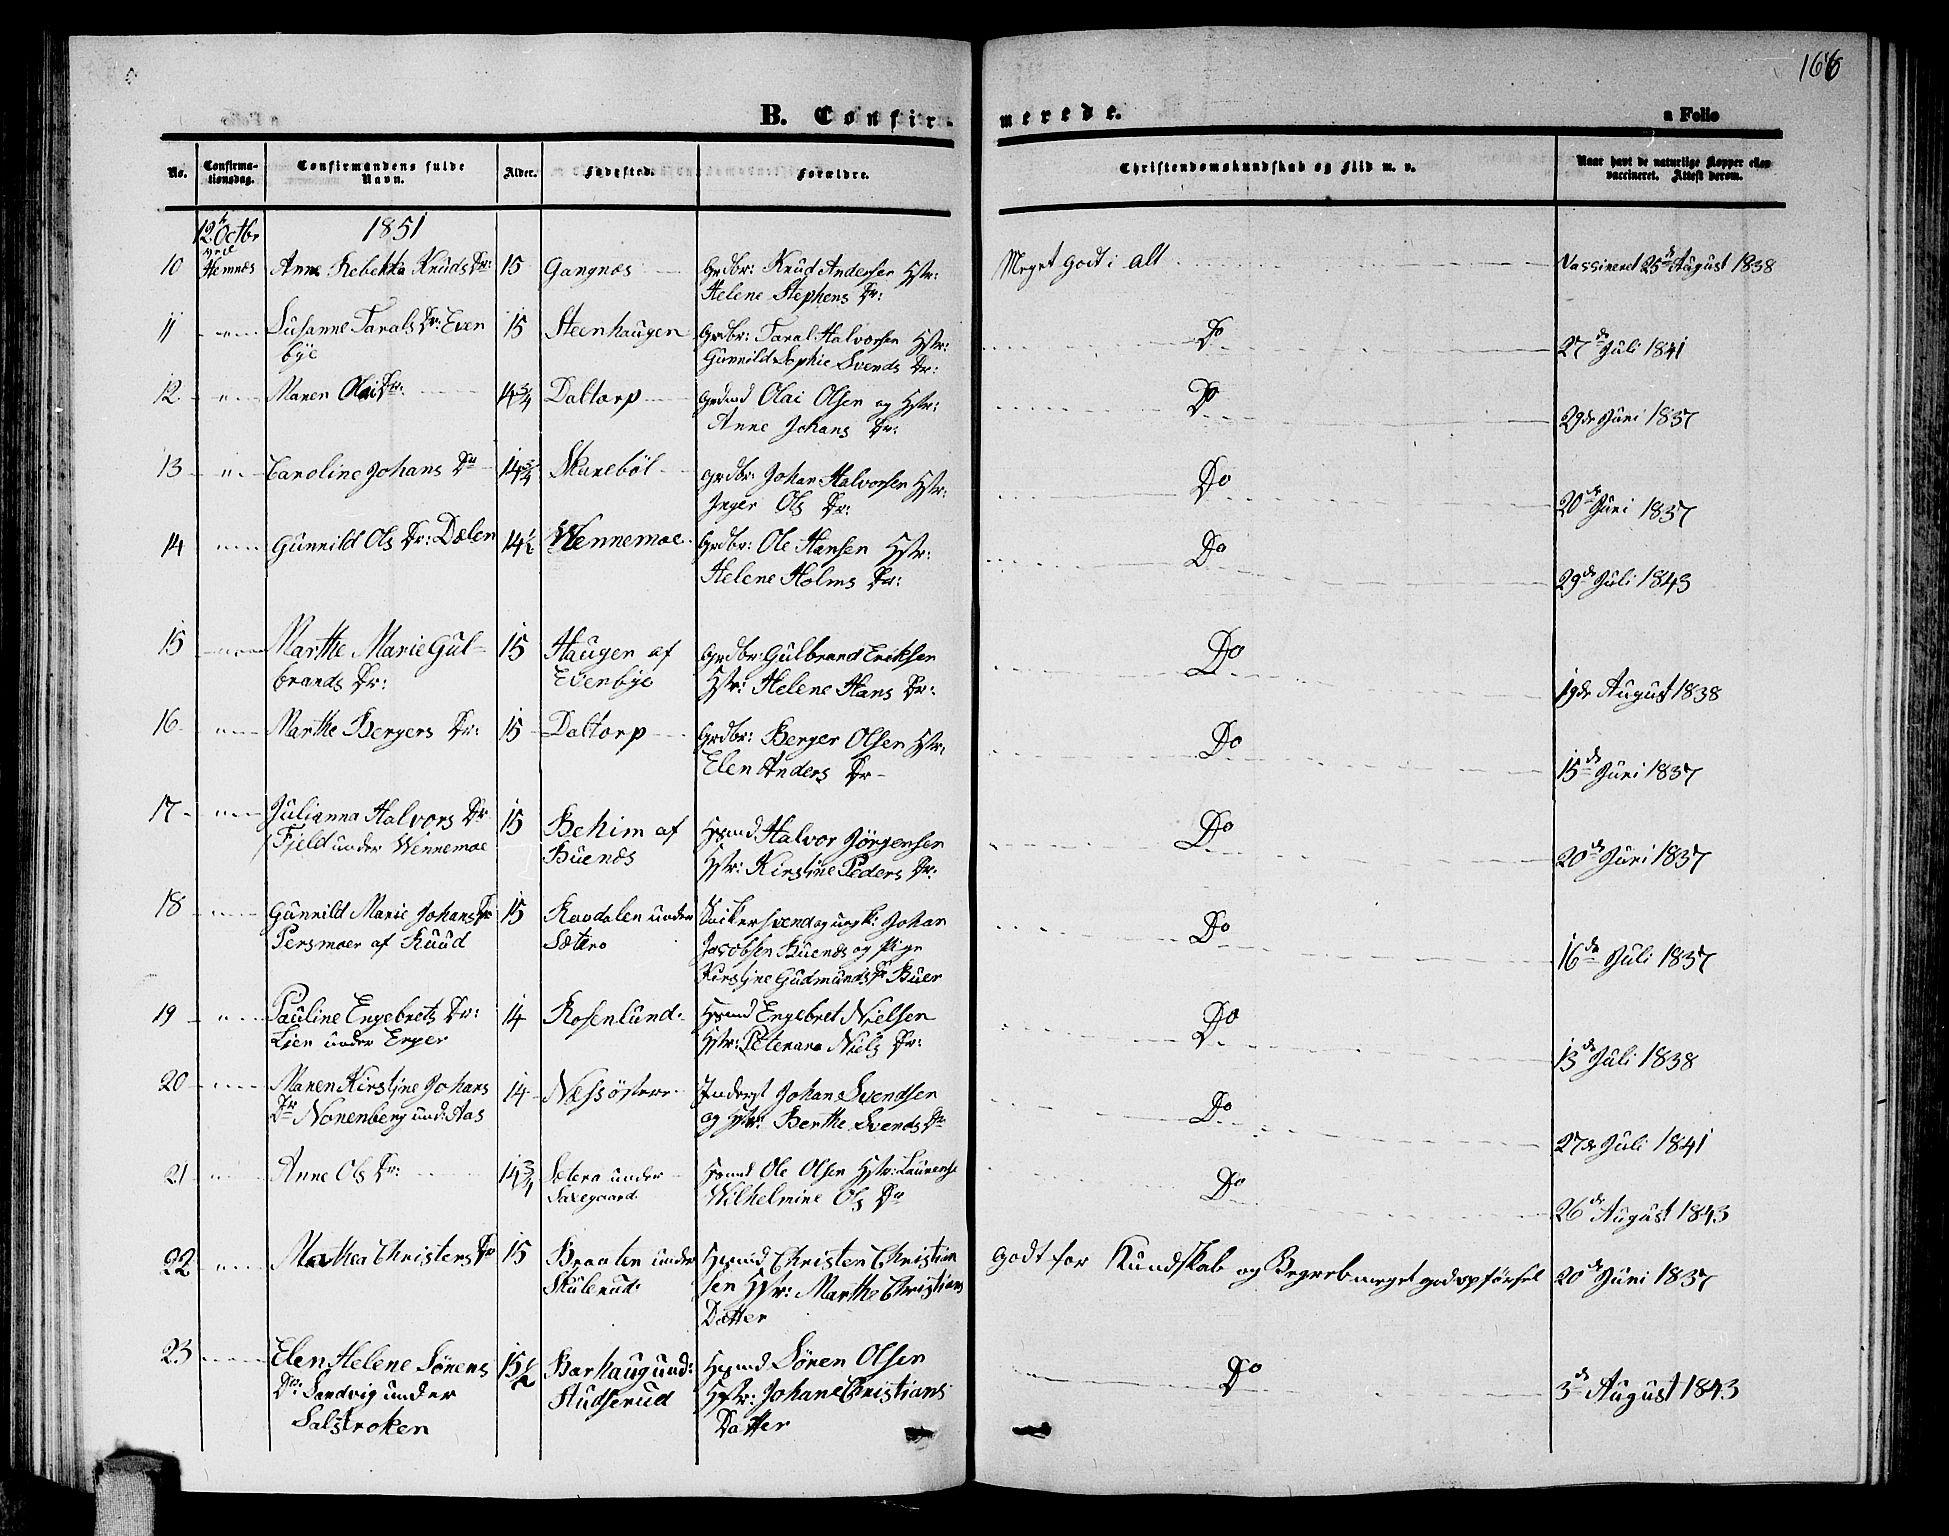 166
B. Confirmerede.
a Folio
No.
Confirmationsdag.
Confirmandens fulde Navn.
Alder.
Fødested.
Forældre.
Christendomskundskab og Flid m. v.
Naar havt de naturlige Kopper eller vaccineret. Attest derom.
12 Octbr 1851
ved Hemnæs
10 Anne Rebekka Knuds Dr: 15 Gangnæs Grdbr: Knud Andersen Hstr: Meget godt i alt Vassineret 25de August 1838
Helene Stephens Dr:
11 " Susanne Tarals Dr: Even 15 Steenhaugen Grdbr: Taral Halvorsen Hstr: Do 27de Juli 1841
bye Gunnild Sophie Svends Dr:
12 " Maren Olai Dr: 14 3/4 Daltorp Grdmd Olai Olsen og Hstr: Do 29de Juni 1837
Anne Johans Dr:
13 " Caroline Johans Dr 14 3/4 Skarebøl Grdbr: Johan Halvorsen Hstr: Do 20de Juni 1837
Inger Ols Dr:
14 " Gunnild Ols Dr: Dælen 14 1/2 Wennemoe Grdbr: Ole Hansen Hstr: Do 29de Juli 1843
Helene Holms Dr:
15 " Marthe Marie Gul- 15 Haugen af Grdbr: Gulbrand Eriksen Do 19de August 1838
brands Dr: Evenbye Hstr: Helene Hans Dr:
16 " Marthe Bergers Dr: 15 Daltorp Grdbr: Berger Olsen Hstr: Do 15de Juni 1837
Elen Anders Dr
17 " Julianna Halvors Dr 15 Behim af Hsmd Halvor Jörgensen Do 20de Juni 1837
Fjeld under Wennemoe Buenæs Hstr: Kirstine Peders Dr:
18 " Gunnild Marie Johans Dr 15 Ravdalen under ungk: Johan Do 16de Juli 1837
Persmoer af Ruud Sætera Jacobsen Buenæs og Pige
Kirstine Gudmunds Dr Buer
19 " Pauline Engebrets Dr: 14 Rosenlund Hsmd Engebret Nielsen Do 13de Juli 1838
Lien under Enger Hstr: Petenara Niels Dr:
20 " Maren Kirstine Johans 14 Næssöstere Inderst Johan Svendsen Do 27de Juli 1841
Dr Nonenberg und: Aas og Hstr: Berthe Svends Dr
21 " Anne Ols Dr: 14 3/4 Sætera under Hsmd Ole Olsen Hstr: Laurense Do 26de August 1843
Saxegaard Wilhelmine Ols Dr
22 " Mathea Christens Dr 15 Braaten under Hsmd Christen Christian Godt for Kundskab og Begreb meget god opförsel 20de Juni 1837
Skulerud sen Hstr: Marthe Christians
Datter
23 " Elen Helene Sörens 15 1/2 Barhaug und: Hsmd Sören Olsen Do 3de August 1843
Dr: Sandvig under Studserud Hstr: Johane Christians
Salstroken Datter